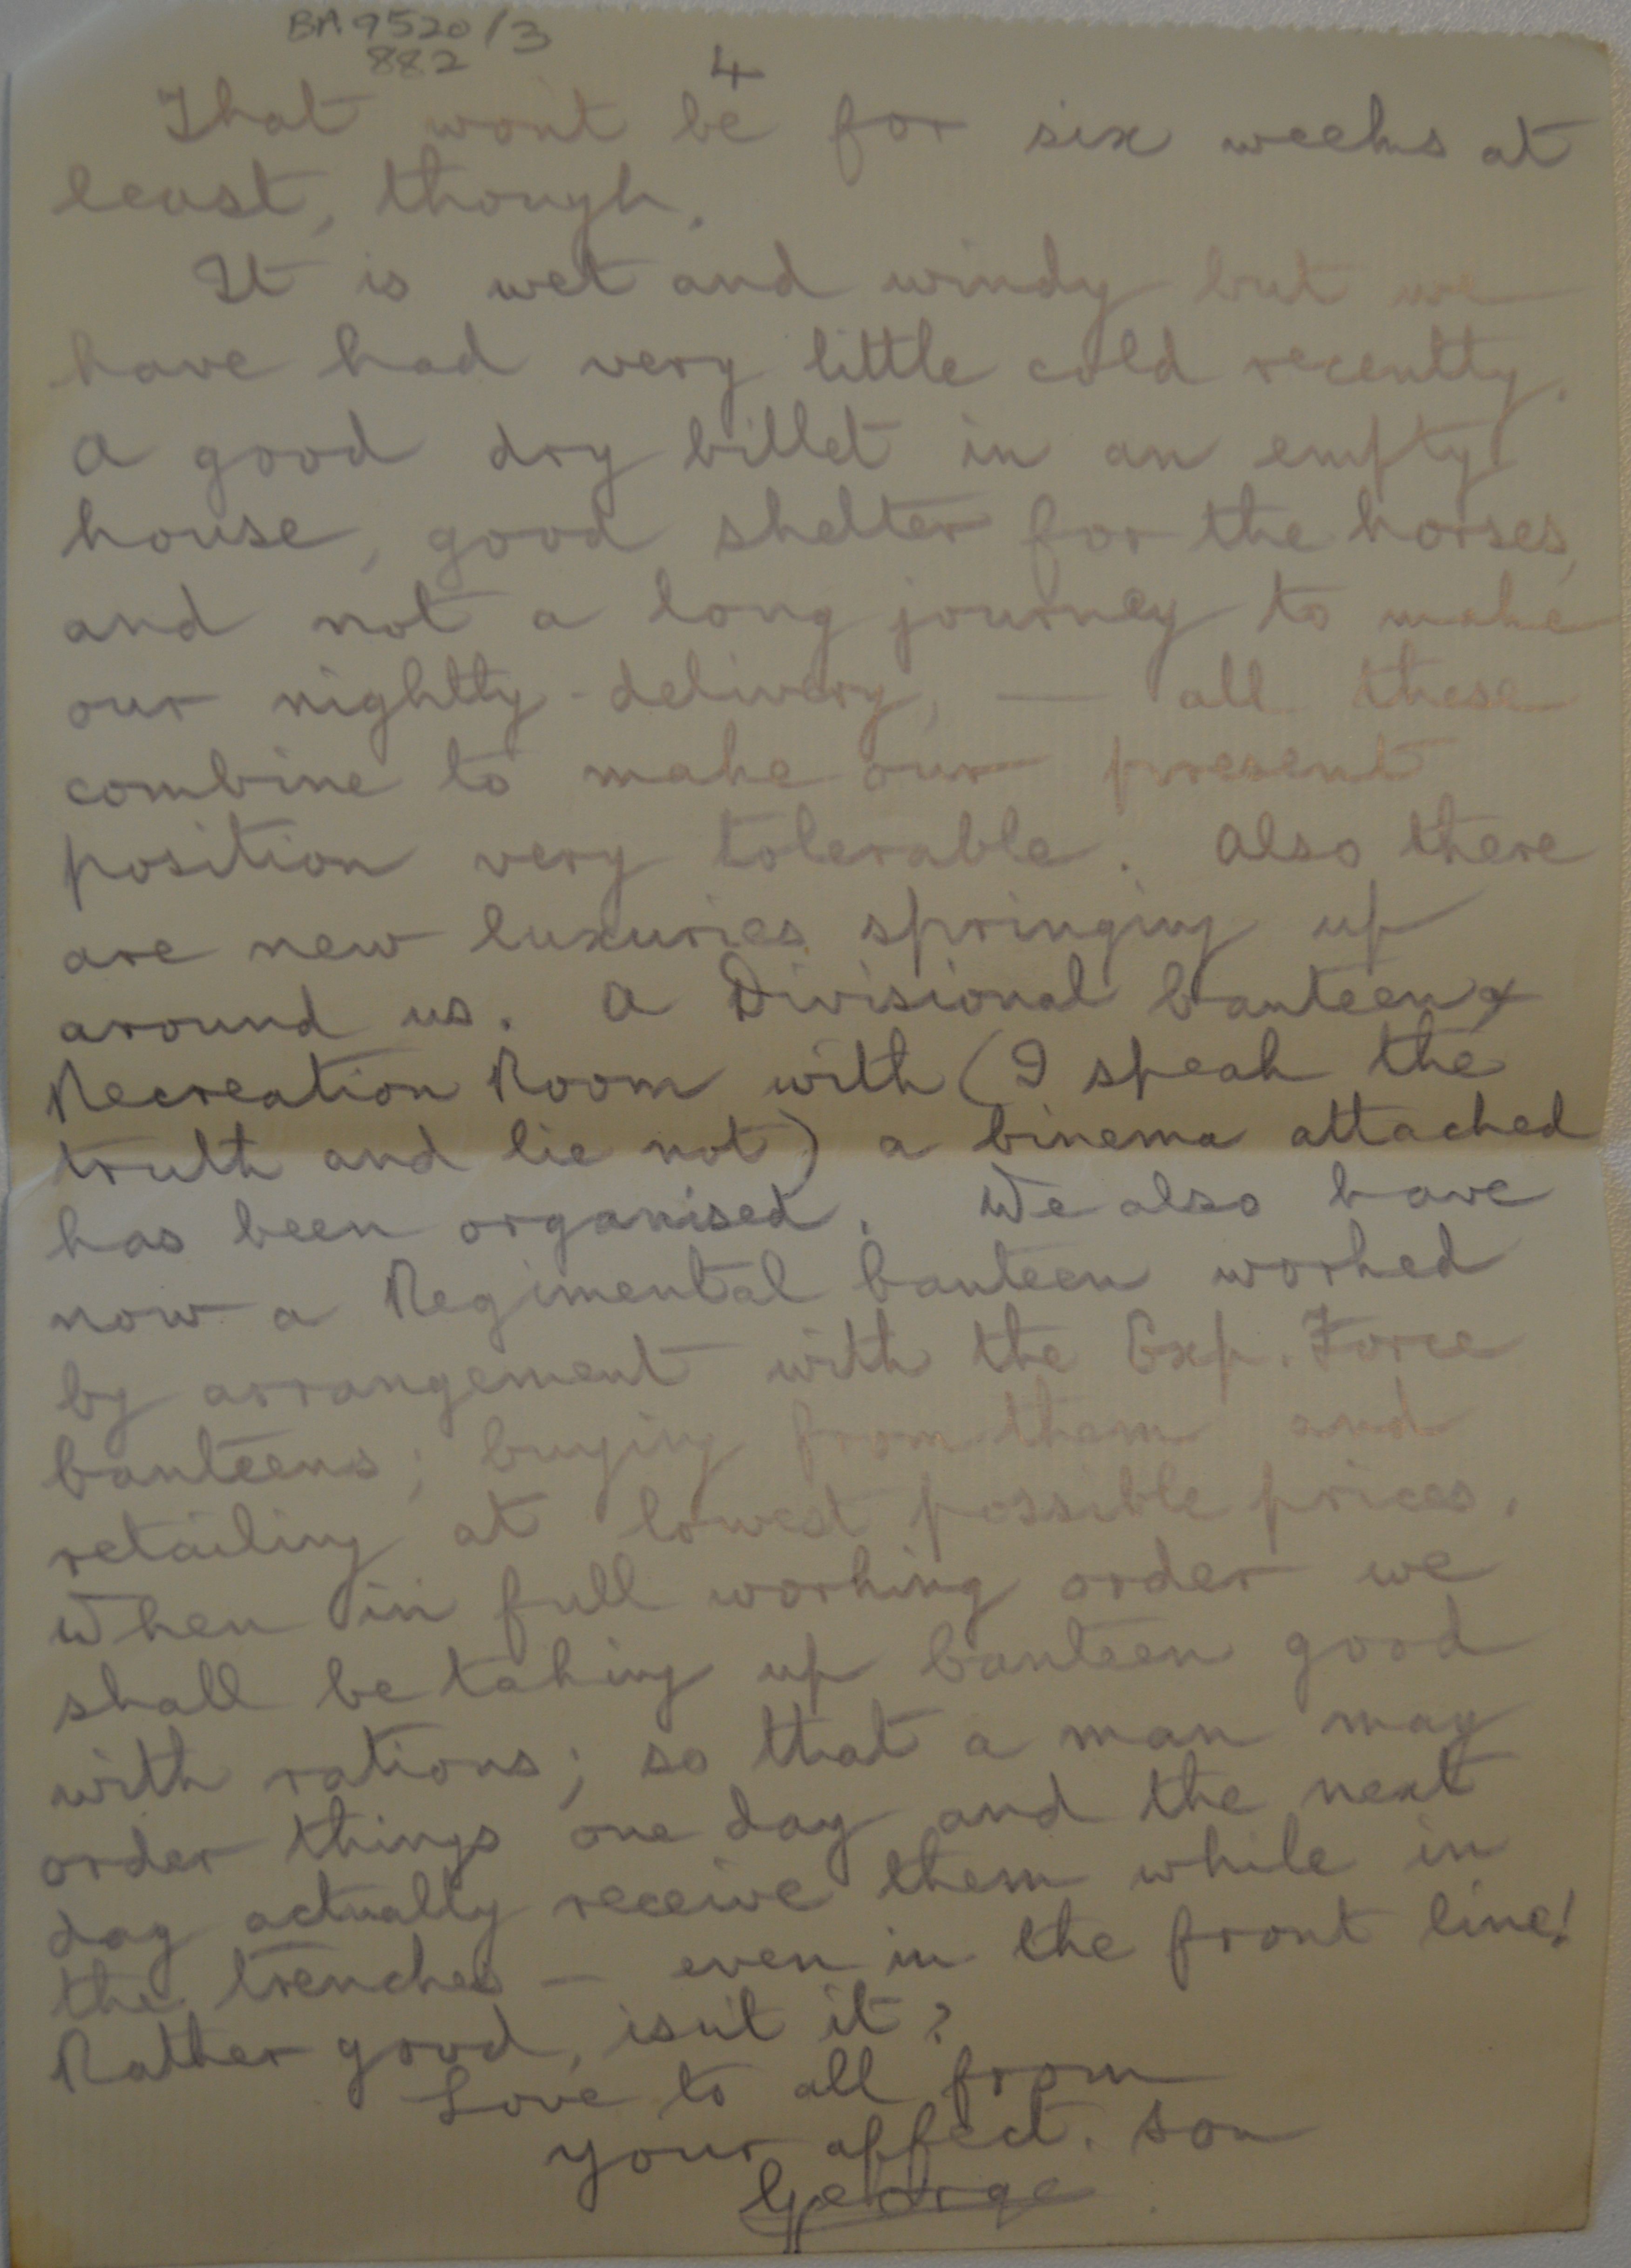 BA 9520/3
882
4
That wont be for six weeks at
least, though.
It is wet and windy but we
have had very little cold recently.
A good dry billet in an empty
house, good shelter for the horses,
and not a long journey to make
our nightly delivery, — all these
combine to make our present
position very tolerable. Also there
are new luxuries springing up
around us. A Divisional Canteen &
Recreation Room with (I speak the
truth and lie not) a Cinema attached
has been organised. We also have
now a Regimental Canteen worked
by arrangement with the Exp. Force
Canteens; buying from them and
retailing at lowest possible prices.
When in full working order we
shall be taking up Canteen good
with rations; so that a man may
order things one day and the next
day actually receive them while in
the trenches — even in the front line!
Rather good, isn't it?
Love to all from
your affect. son
George